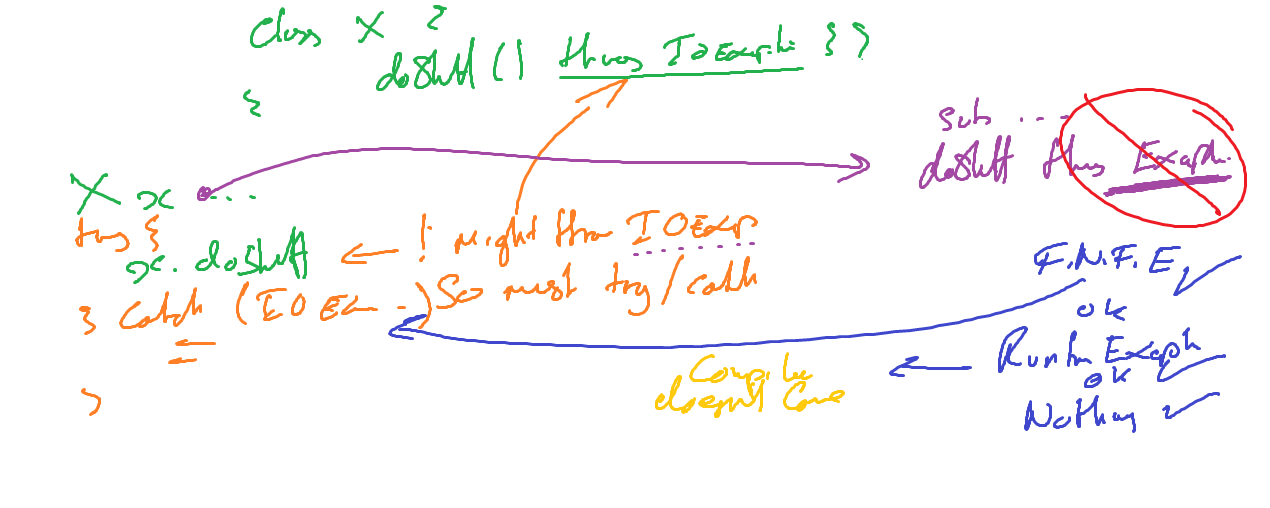 Class X {
doStuff() throws IOExceptin { }
}
sub ....
doStuff throws Exceptn.
X x ....
try {
x. doStuff ← ! might throw IOExcep
} Catch (IOEx -) So must try/catch
}
F.N.F.E ✓
ok
Runtim Exceptn ✓
ok
Nothing ✓
Compiler
doesn't Care